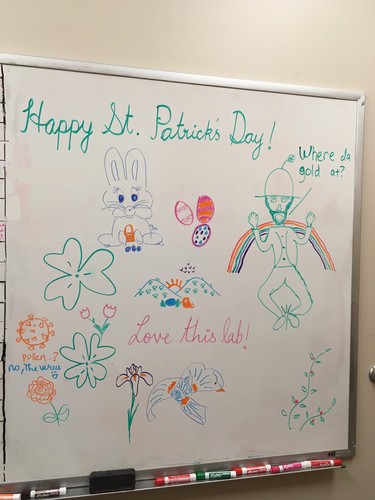 Happy St. Patrick's Day!
Where da
gold at?
Love this lab!
pollen?
no, the virus